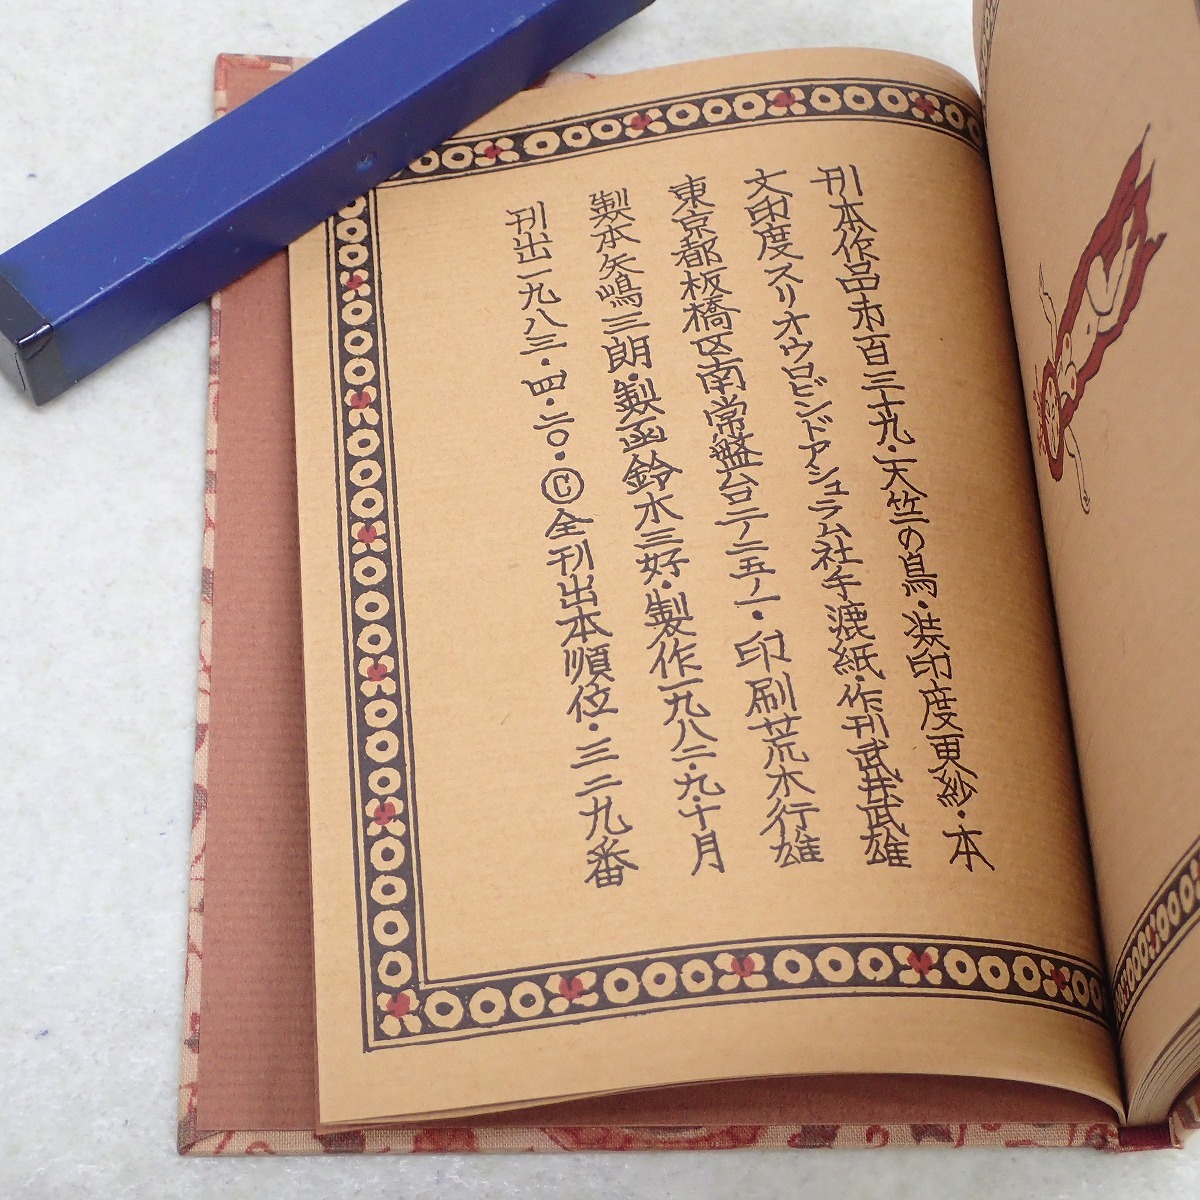 刊本作品㐧百三十九・天竺の鳥・装印度更紗・本
文印度スリオウロビンドアシュラム社手漉紙・作刊武井武雄
東京都板橋区南常盤台二ノ二五ノ一・印刷荒木行雄
製本矢嶋三朗・製函鈴木三好・製作一九八二・九・十月
刊出一九八三・四・二〇・©全刊出本順位・三二九番